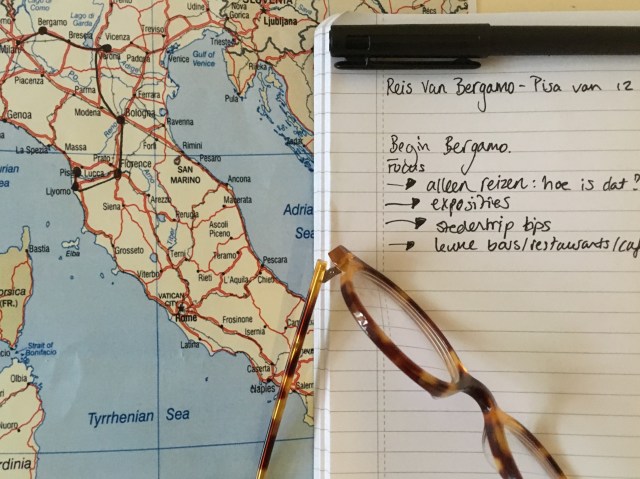 SLOVENIA
Lago di Como
Lago di Garda
Bergamo
Brescia
Vicenza
Treviso
Udine
Nova Gorica
Ljubljana
Milan
Verona
Padova
Gulf of Venice
Piacenza
Parma
Ferrara
Pula
Genoa
Modena
Bologna
Ravenna
La Spezia
Massa
Prato
Forlì
Rimini
Pesaro
Pisa
Lucca
Florence
SAN MARINO
Livorno
Ancona
Siena
Arezzo
Macerata
Adria
Sea
Perugia
Ascoli Piceno
Bastia
Elba
Grosseto
Tiber
Terni
Pescara
Viterbo
Rieti
L'Aquila
Chieti
orsica
(FR.)
VATICAN CITY
Rome
Frosinone
Isernia
Latina
Strait of Bonifacio
Caserta
Naples
Salerno
Olbia
Tyrrhenian Sea
Nuoro
rdinia
Reis van Bergamo - Pisa van 12
Begin Bergamo.
Focus
→ alleen reizen: hoe is dat?
→ exposities
→ stedentrip tips
→ leuke bars/restaurants/caf